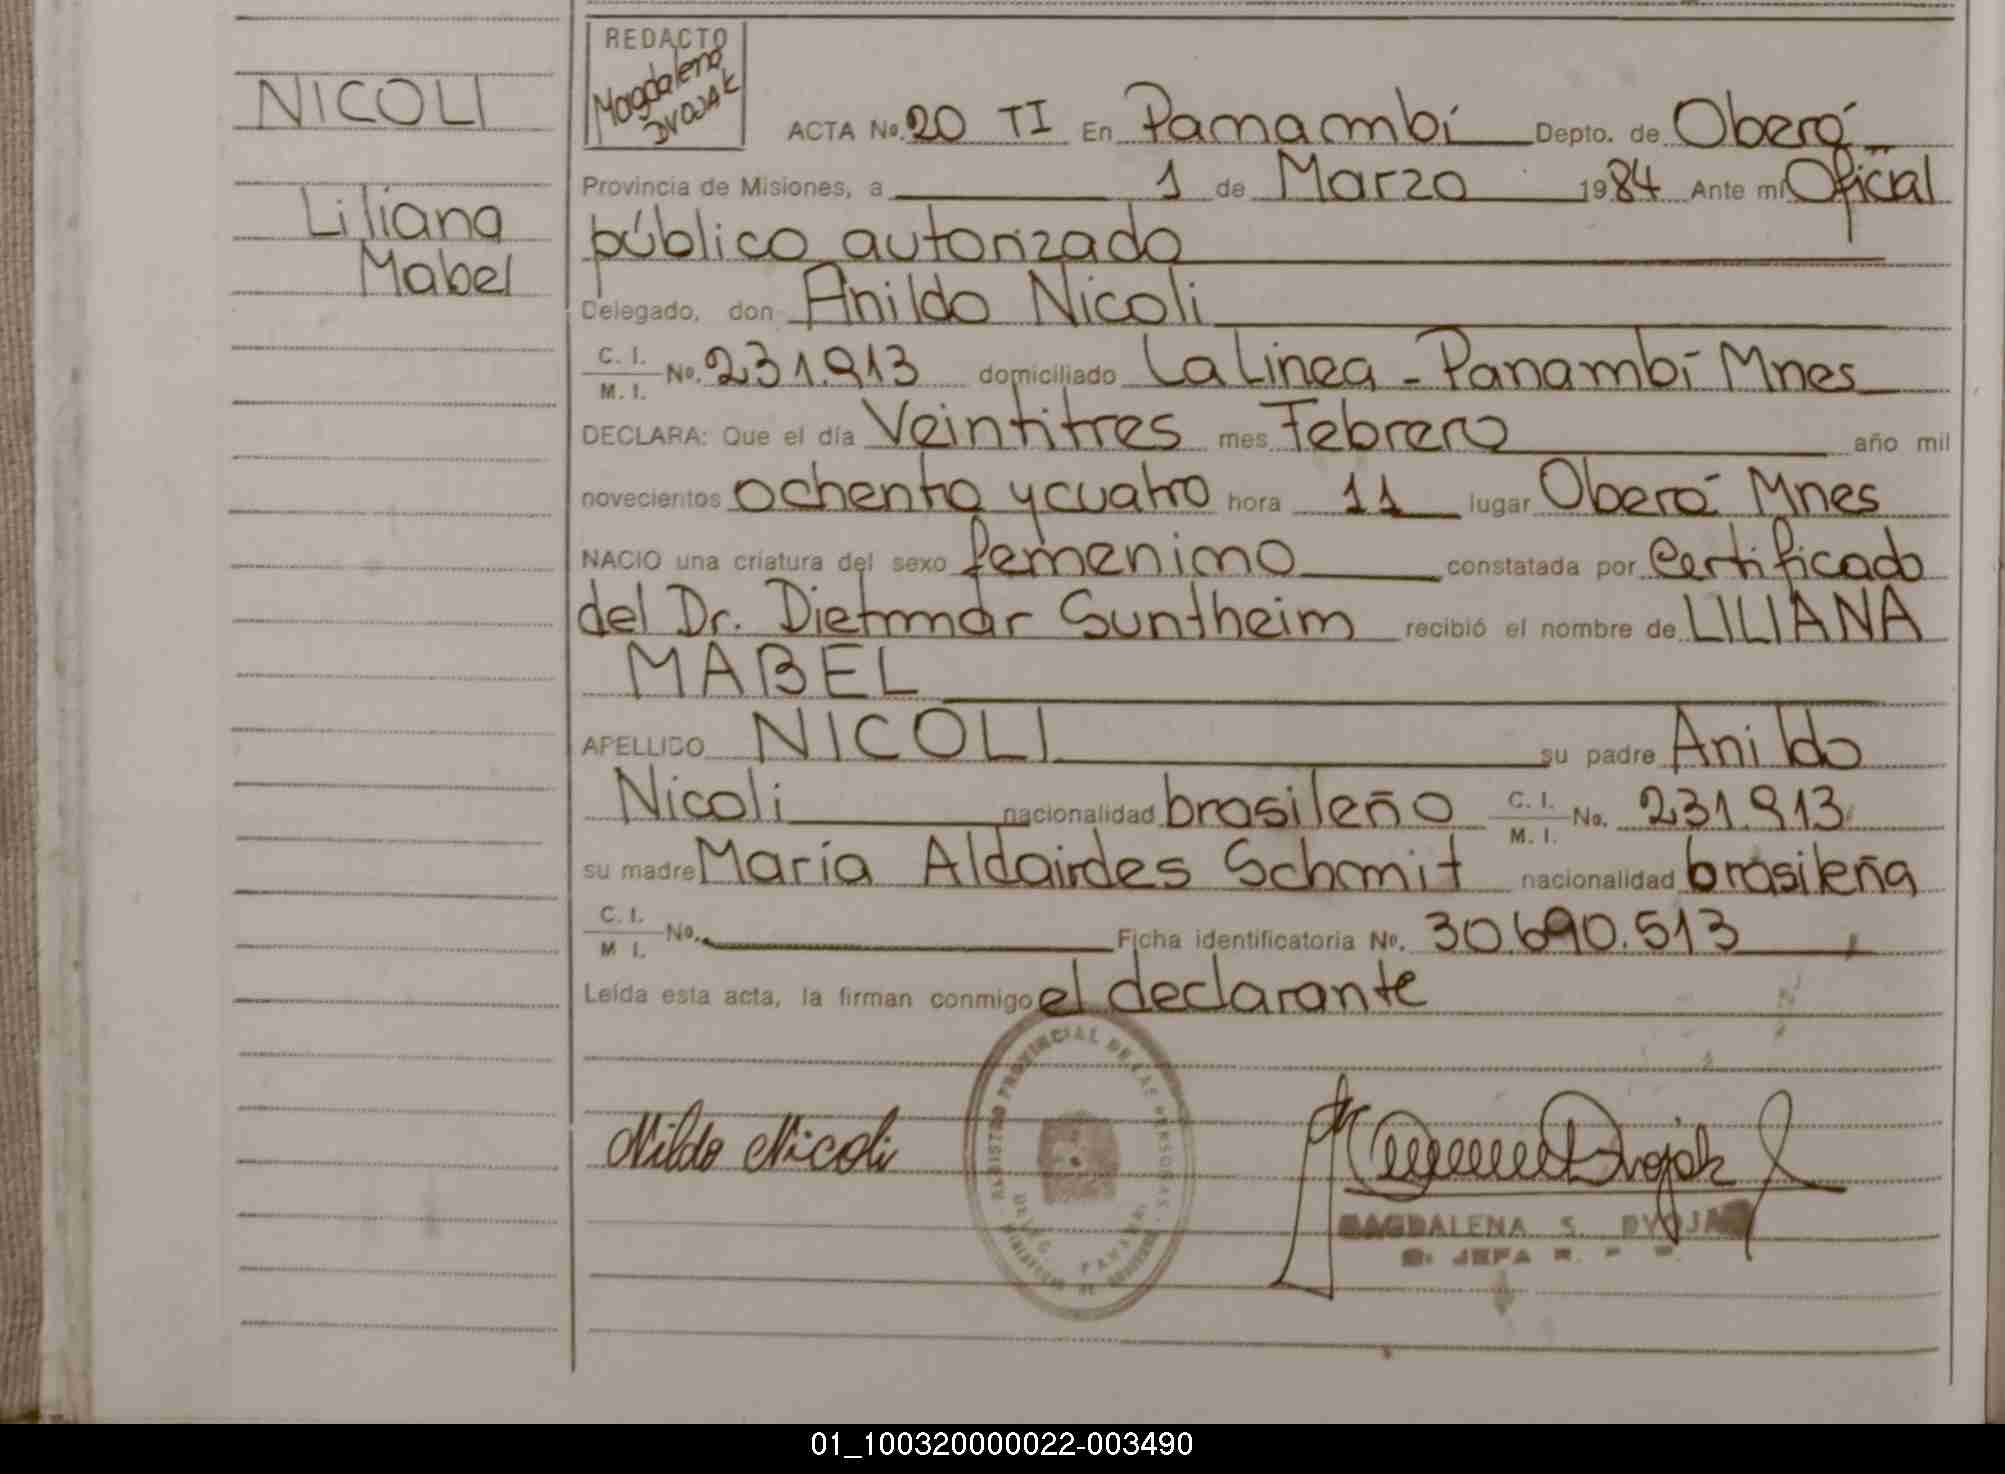 NICOLI
Liliana
Mabel
REDACTO
Magdalena
DVOJAK
ACTA No. 20 TI En Panambí Depto. de Oberá
Provincia de Misiones, a 1 de Marzo 1984 Ante mí Oficial
público autorizado
Delegado, don Anildo Nicoli
C. I. / M. I. No. 231.913 domiciliado La Linea - Panambí Mnes
DECLARA: Que el día Veintitres mes Febrero año mil
novecientos ochenta y cuatro hora 11 lugar Oberá Mnes
NACIO una criatura del sexo femenino constatada por Certificado
del Dr. Dietmar Suntheim recibió el nombre de LILIANA
MABEL
APELLIDO NICOLI su padre Anildo
Nicoli nacionalidad brasileño C. I. / M. I. No. 231.913
su madre María Aldairdes Schmit nacionalidad brasileña
C. I. / M I. No. Ficha identificatoria No. 30.690.513
Leída esta acta, la firman conmigo el declarante
REGISTRO PROVINCIAL DE LAS PERSONAS
Nildo Nicoli
Dvojak
MAGDALENA S. DVOJAK
JEFA R. P.
01_100320000022-003490